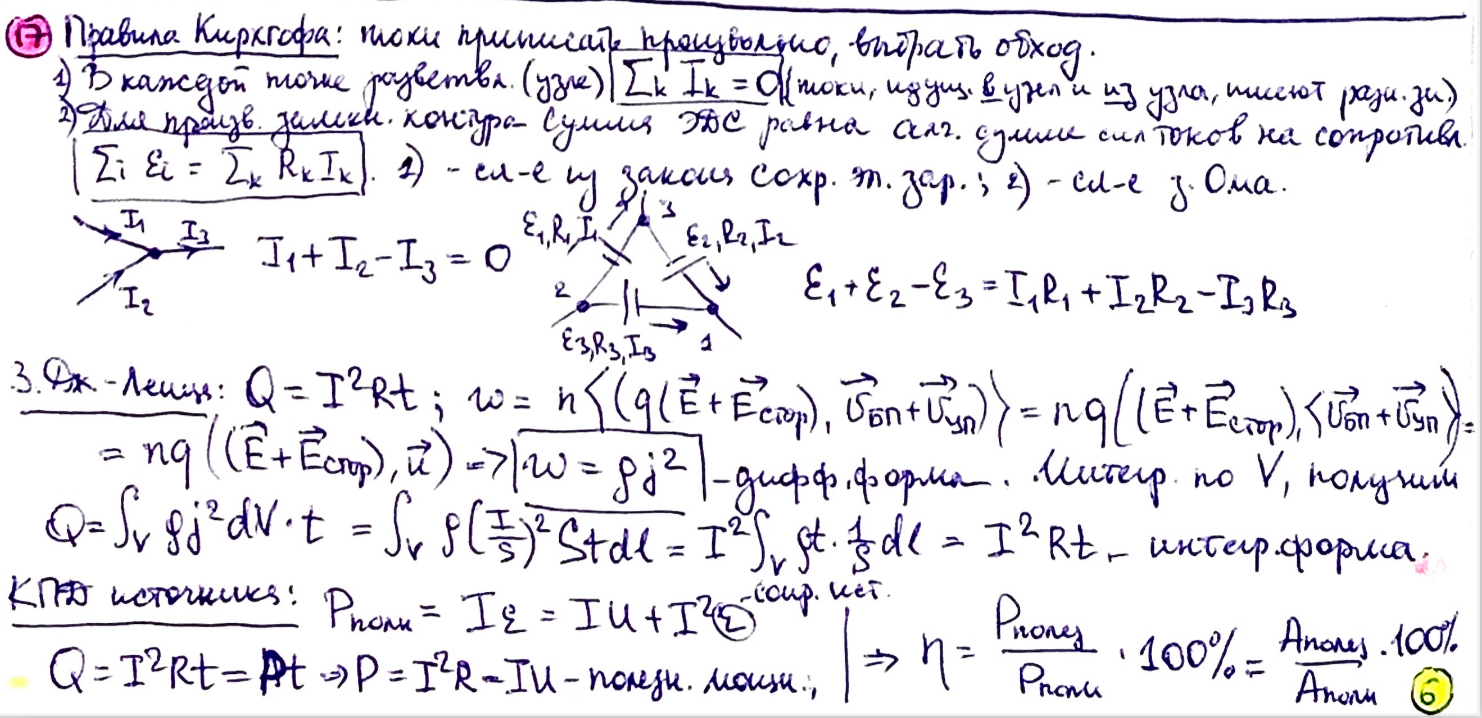 17 Правила Кирхгофа: токи приписать произвольно, выбрать обход.
1) В каждой точке разветвл. (узле) Σₖ Iₖ = 0 (токи, идущ. в узел и из узла, имеют разн. зн.)
2) Для произв. замкн. контура сумма ЭДС равна алг. сумме сил токов на сопротивл.
Σᵢ Ɛᵢ = Σₖ RₖIₖ. 1) - сл-е из закона сохр. эл. зар.; 2) - сл-е з. Ома.
I₁ I₃ I₂ I₁ + I₂ - I₃ = 0
Ɛ₁,R₁,I₁ 3 Ɛ₂,R₂,I₂
2 Ɛ₃,R₃,I₃ 1
Ɛ₁ + Ɛ₂ - Ɛ₃ = I₁R₁ + I₂R₂ - I₃R₃
З. Дж.-Ленца: Q = I²Rt; w = n⟨(q(E⃗ + E⃗стор), v⃗бп + v⃗уп)⟩ = nq((E⃗ + E⃗стор), ⟨v⃗бп + v⃗уп⟩) =
= nq((E⃗ + E⃗стор), u⃗) => w = ρj² - дифф. форма. Интегр. по V, получим
Q = ∫ᵥ ρj²dV·t = ∫ᵥ ρ(I/S)² Stdl = I²∫ᵥ ρt·1/S dl = I²Rt - интегр. форма.
КПД источника: Pполн = IƐ = IU + I²r - сопр. ист.
Q = I²Rt = Pt => P = I²R = IU - полезн. мощн.; => η = Pполез/Pполн · 100% = Aполез/Aполн · 100%
6